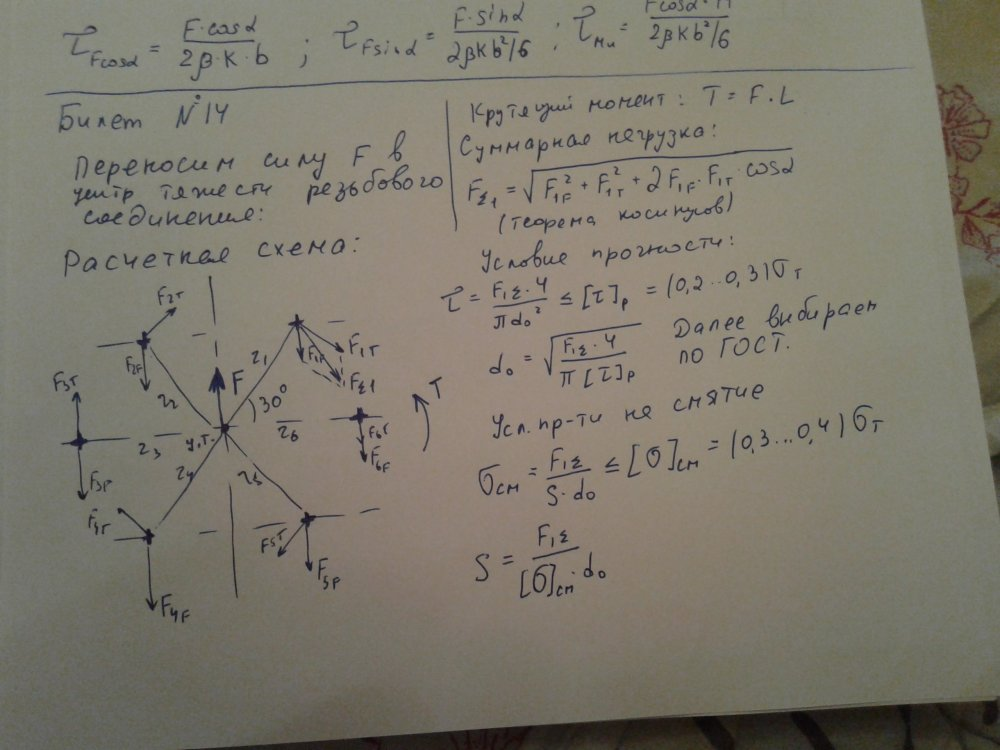 τFcosα = F·cosα / 2β·K·b ; τFsinα = F·sinα / 2βKb²/6 ; τMu = Fcosα·H / 2βKb²/6
Билет №14
Переносим силу F в
центр тяжести резьбового
соединения:
Расчетная схема:
F2T
F2F
F3T
F3F
F4T
F4F
F5T
F5F
F1T
F1F
FΣ1
F6T
F6F
r1
r2
r3
r4
r5
r6
30°
F
ц.т.
T
Крутящий момент: T = F·L
Суммарная нагрузка:
FΣ1 = √(F1F² + F1T² + 2F1F·F1T·cosα)
(теорема косинусов)
Условие прочности:
τ = F1Σ·4 / πd0² ≤ [τ]р = (0,2..0,3)σт
d0 = √(F1Σ·4 / π[τ]р) Далее выбираем
по ГОСТ.
Усл. пр-ти на смятие
σсм = F1Σ / S·d0 ≤ [σ]см = (0,3...0,4)σт
S = F1Σ / [σ]см·d0